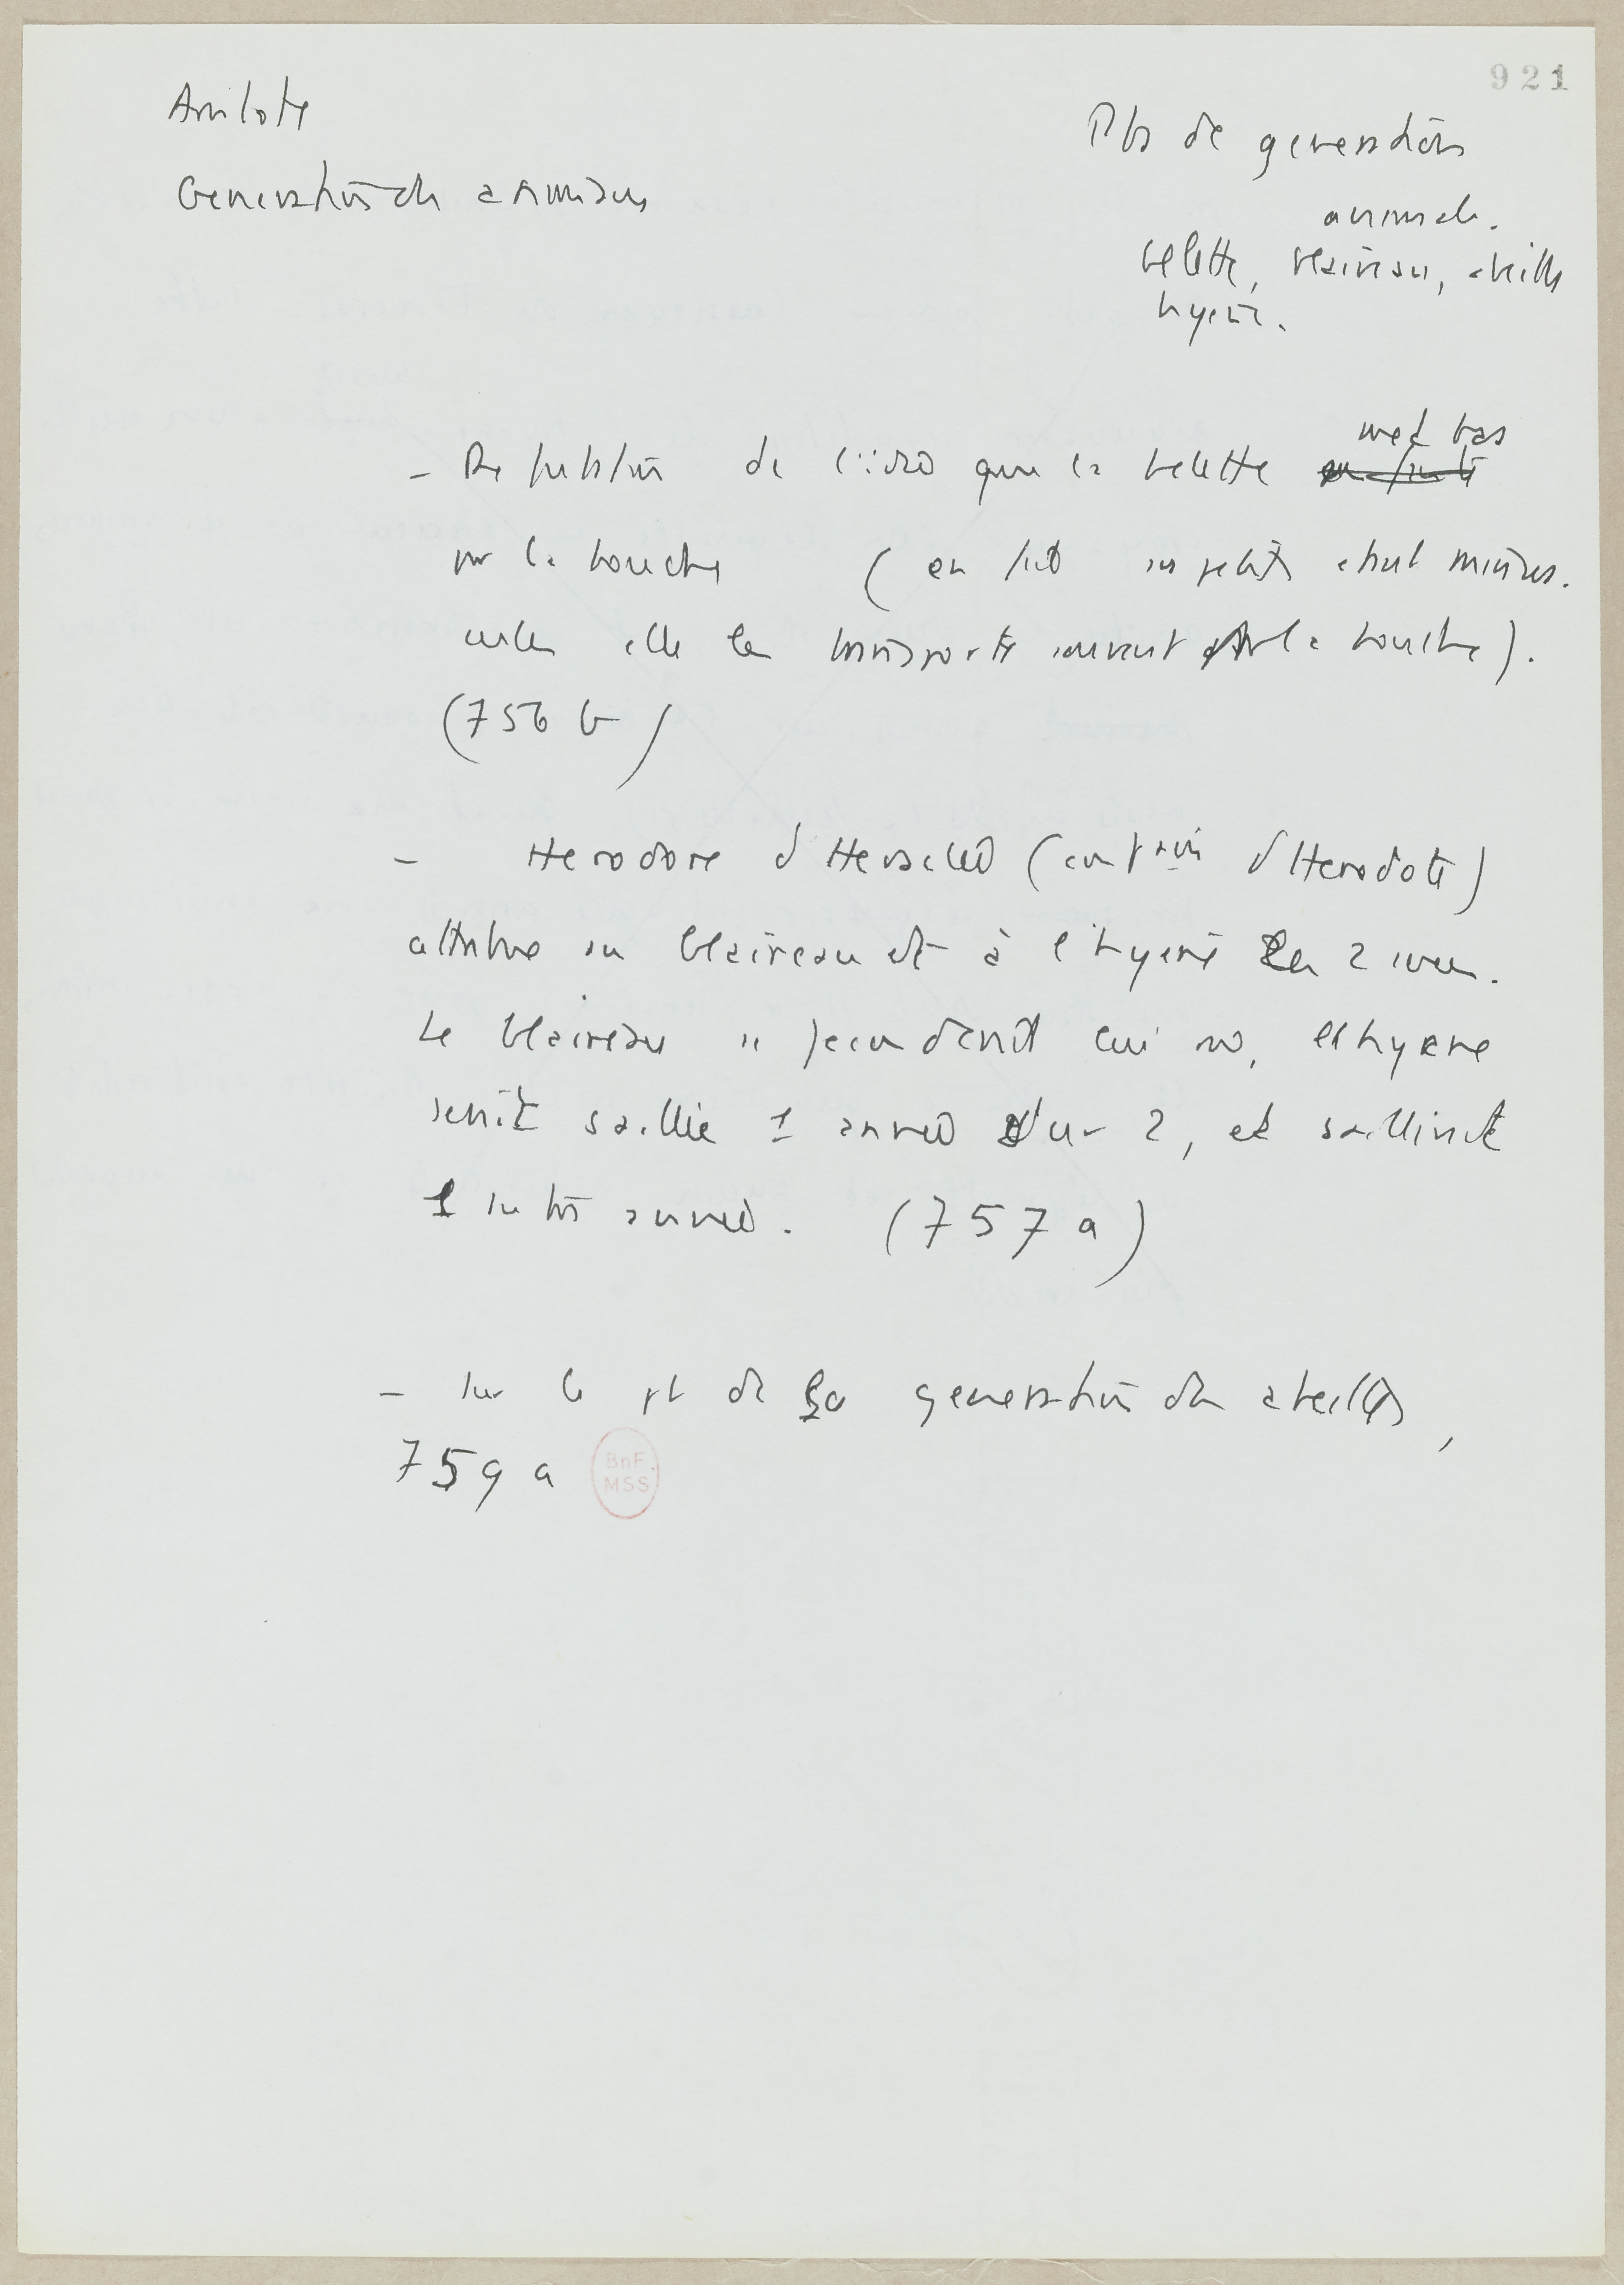 921
Aristote
Generation des animaux
Pbs de generation
animale.
belette, blaireau, abeille
hyene.
- Refutation de l'idee que la belette met bas
par la bouche (en fait ses petits etant minus.
cules elle les transporte souvent par la bouche).
(756 b)
- Herodore d'Heraclee (contemporain d'Herodote)
attribue au blaireau et à l'hyene les 2 sexes.
Le blaireau se feconderait lui mo, l'hyene
serait saillie 1 annee sur 2, et saillirait
1 autre annee. (757 a)
- Sur le pb de la generation des abeilles,
759 a
BnF
MSS